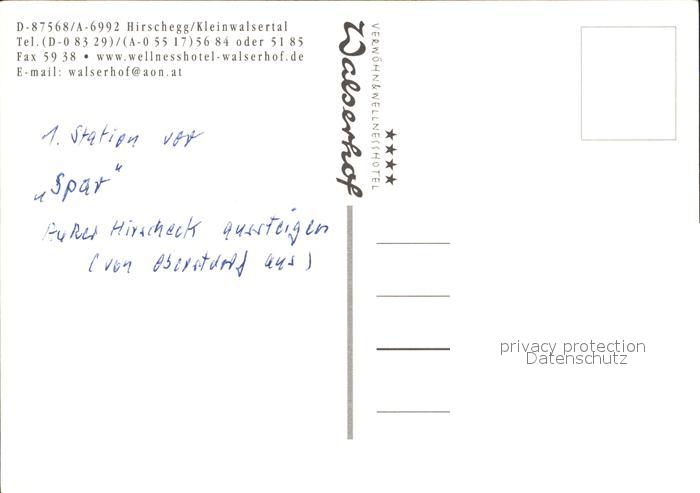 D-87568/A-6992 Hirschegg/Kleinwalsertal
Tel.(D-0 83 29)/(A-0 55 17)56 84 oder 51 85
Fax 59 38 • www.wellnesshotel-walserhof.de
E-mail: walserhof@aon.at
VERWÖHN&WELLNESSHOTEL
Walserhof
1. Station vor
„Spar"
Hirscheck aussteigen
(von Oberstdorf aus)
privacy protection
Datenschutz